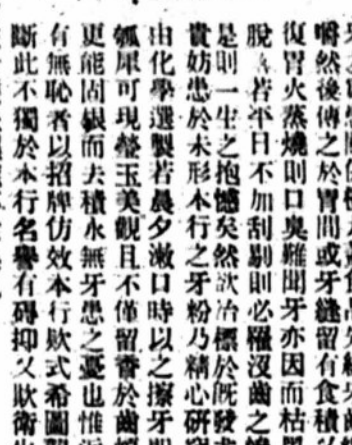 嚼然後傳之於胃間或牙縫留有食積
復胃火蒸燒則口臭難聞牙亦因而枯
脫若平日不加刮剔則必罹沒齒之
是則一生之抱憾矣然欲冶標於既發
貴妨患於未形本行之牙粉乃精心研
由化學選製若晨夕漱口時以之擦牙
瓠犀可現瑩玉美觀且不僅留香於齒
更能固銀而去積永無牙患之憂也惟
有無恥者以招牌仿效本行欵式希圖
斷此不獨於本行名譽有碍抑又欺衛